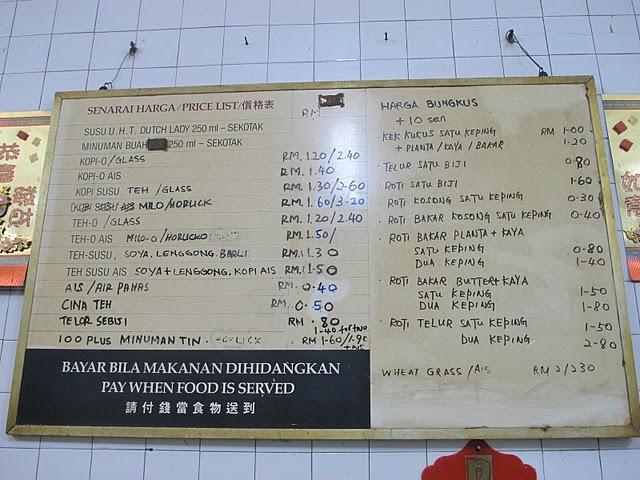 SENARAI HARGA/PRICE LIST/價格表 RM
SUSU U.H.T. DUTCH LADY 250 ml – SEKOTAK
MINUMAN 250 ml – SEKOTAK
KOPI-O/GLASS RM.1.20/2.40
KOPI-O AIS RM.1.40
KOPI SUSU TEH /GLASS RM.1.30/2-60
MILO/HORLICK RM.1.60/3-20
TEH-O /GLASS RM.1.20/2.40
TEH-O AIS MILO-O/HORLICKO RM.1.50/
TEH-SUSU, SOYA. LENGGONG. BARLI RM.1.30
TEH SUSU AIS SOYA+LENGGONG, KOPI AIS RM.1.50
AIS/AIR PANAS RM.0.40
CINA TEH 0.50
TELOR SEBIJI RM .80
1-40 for two
100 PLUS MINUMAN TIN. RM 1-60/1-90
+AIS
BAYAR BILA MAKANAN DIHIDANGKAN
PAY WHEN FOOD IS SERVED
請付錢當食物送到
HARGA BUNGKUS
+10 sen
KEK KUKUS SATU KEPING RM 1-00
+ PLANTA/KAYA/BAKAR 1-20
TELUR SATU BIJI 0-80
ROTI SATU BIJI 1-60
ROTI KOSONG SATU KEPING 0-30
ROTI BAKAR KOSONG SATU KEPING 0-40
ROTI BAKAR PLANTA + KAYA
SATU KEPING 0-80
DUA KEPING 1-40
ROTI BAKAR BUTTER+KAYA
SATU KEPING 1-50
DUA KEPING 1-80
ROTI TELUR SATU KEPING 1-50
DUA KEPING 2-80
WHEAT GRASS /AIS RM 2/230